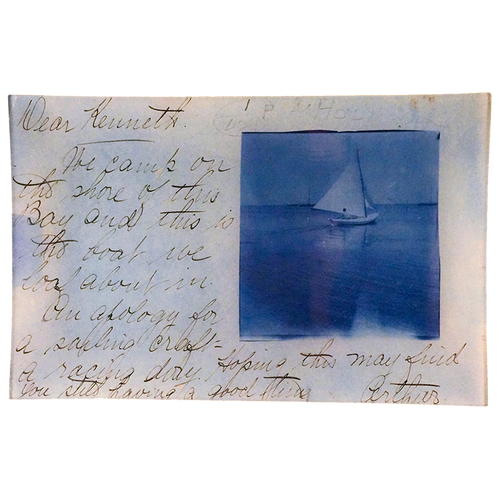 Dear Kenneth.
We camp on
the shore of this
Bay and this is
the boat we
loaf about in.
An apology for
a sailing craft -
a racing dory. Hoping this may find
you still having a good thing
Arthur